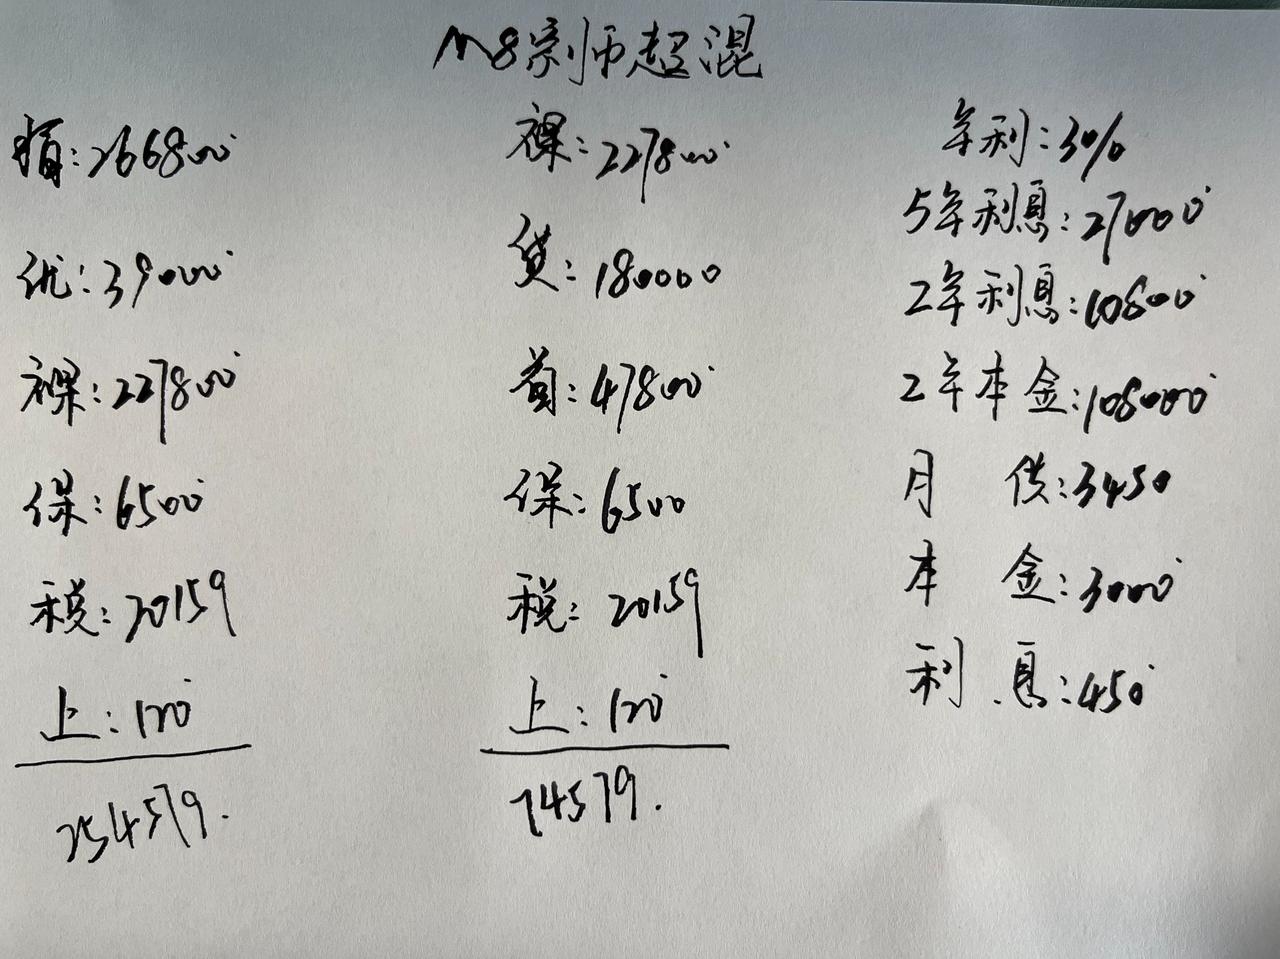 M8宗师超混
指:266800
优:39000
裸:227800
保:6500
税:20159
上:120
254579.
裸:227800
贷:180000
首:47800
保:6500
税:20159
上:120
74579.
年利:3%
5年利息:27000
2年利息:10800
2年本金:108000
月 供:3450
本 金:3000
利 息:450